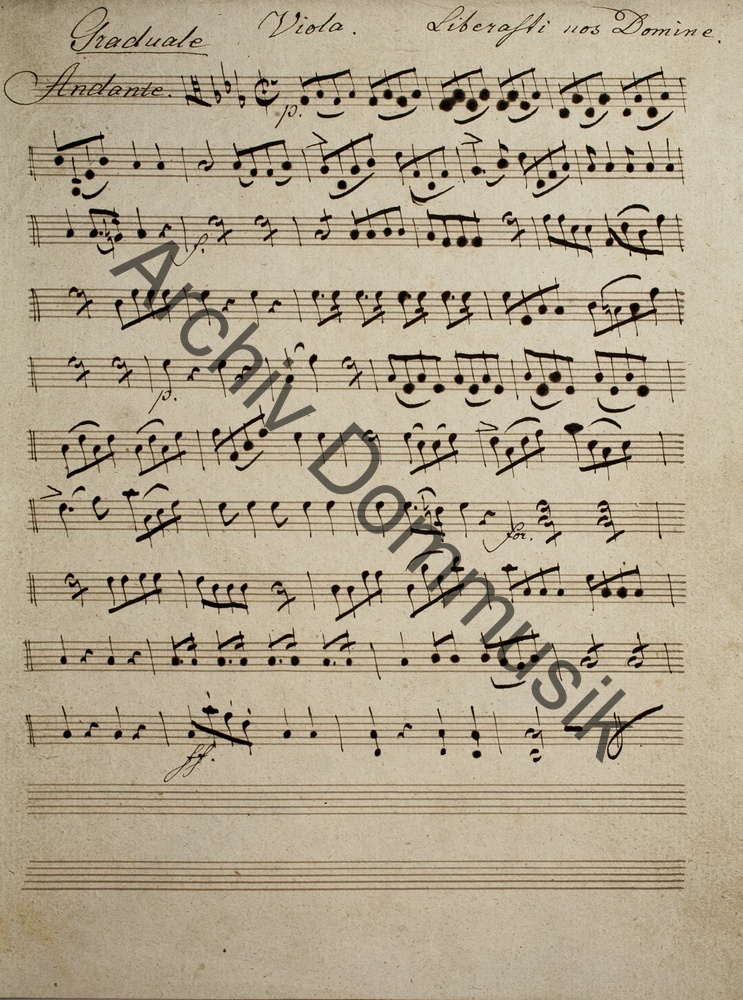 Graduale Viola. Liberasti nos Domine.
Andante.
p.
f.
p.
for.
ff.
Archiv Dommusik